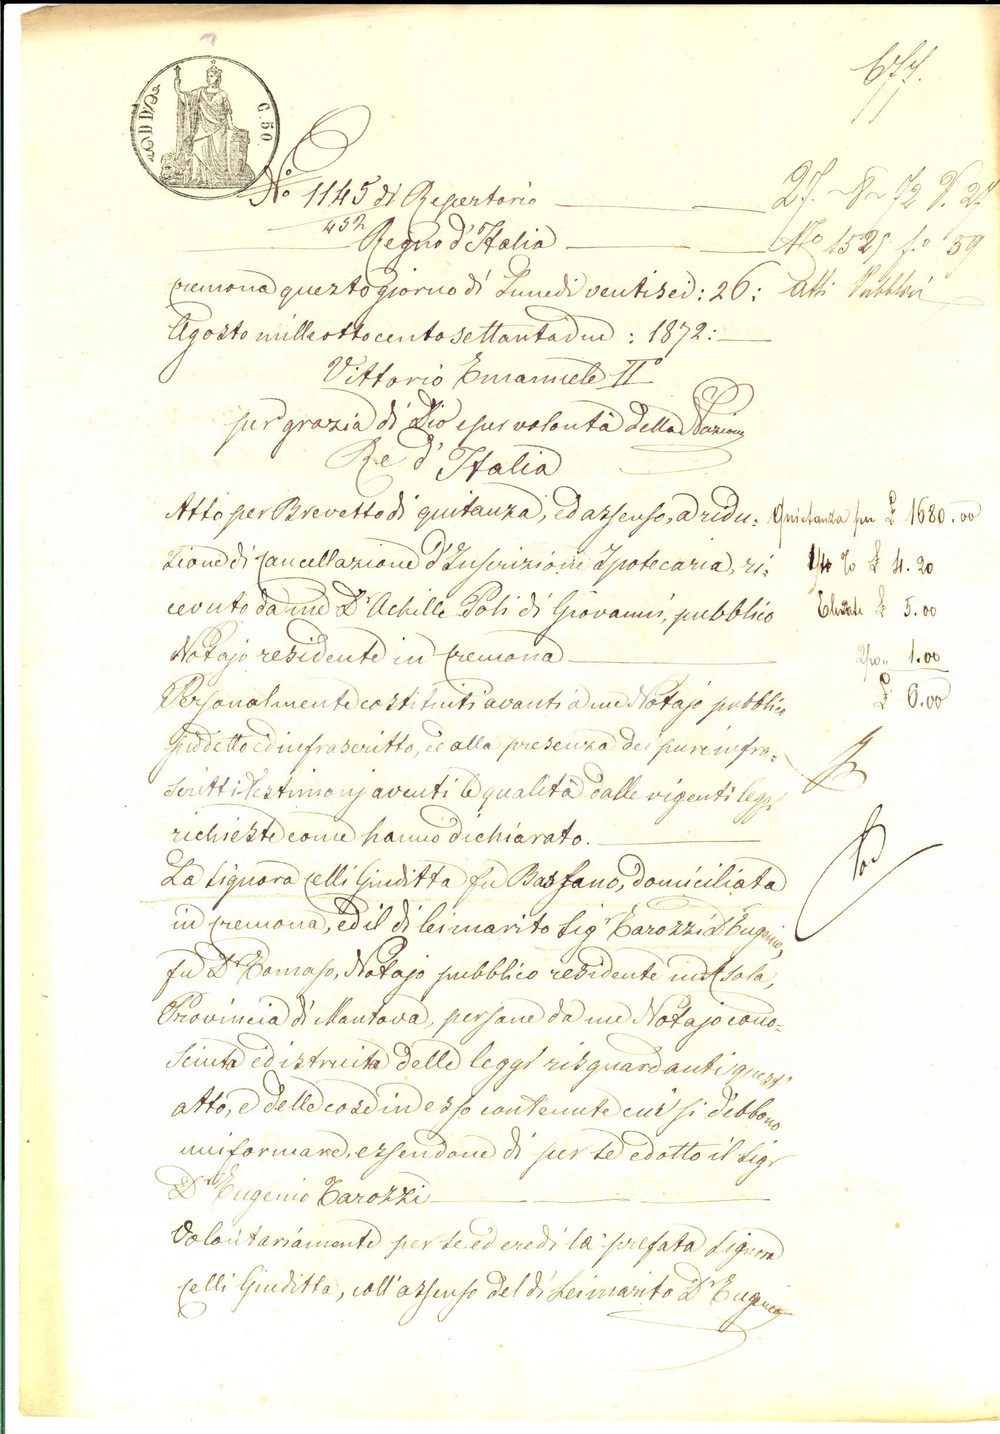 C. 50
N.° 1145 di Repertorio
432
Regno d'Italia
Cremona questo giorno di Lunedi ventisei: 26:
Agosto mille ottocento settantadue : 1872:
Vittorio Emanuele II°
per grazia di Dio e per volontà della Nazione
Re d'Italia
Atto per Brevetto di quitanza, ed assenso, a ridu=
zione di Cancellazione d'Inscrizione Ipotecaria, ri=
cevuto da me Dr Achille Poli di Giovanni, pubblico
Notajo residente in Cremona
Personalmente costituiti avanti a me Notajo pubblico
suddetto ed infrascritto, ed alla presenza dei pure infra=
scritti Testimonj aventi le qualità dalle vigenti leggi
richieste come hanno dichiarato.
La Signora Celli Giuditta fu Bassano, domiciliata
in Cremona, ed il di lei marito Sigr Tarozzi Dr Eugenio,
fu Dr Tomaso, Notajo pubblico residente in Asola,
Provincia di Mantova, persone da me Notajo cono=
sciute ed istruita delle leggi risguardanti quest'
atto, e delle cose in esso contenute cui si debbono
uniformare, essendone di per se edotto il Sigr
Dr Eugenio Tarozzi
Volontariamente per se ed eredi la prefata Signora
Celli Giuditta, coll'assenso del di Lei marito Dr Eugenio
27 - 8 - 72
No 1525 f.o 59
Atti Pubblici
Quietanza per £ 1680.00
1/4 % £ 4.20
£ 5.00
1.00
£ 6.00